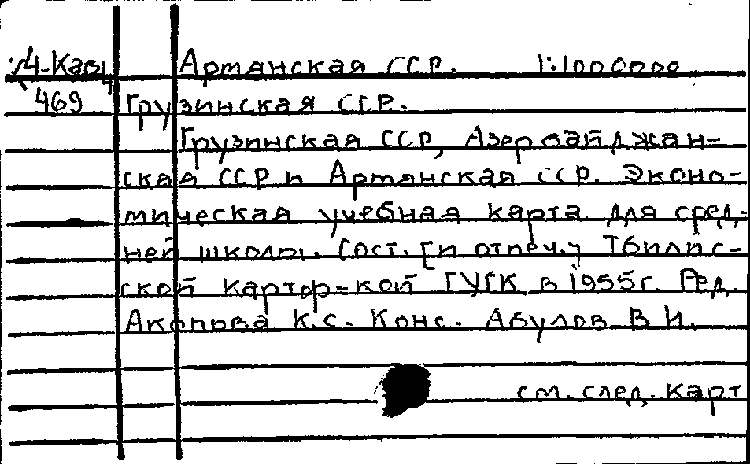 Д-Карт Артянская ССР. 1:1000000
469 Грузинская ССР.
Грузинская ССР, Азербайджан-
ская ССР и Артянская ССР. Эконо-
мическая учебная карта для сред-
ней школы. Сост. [и отпеч.] Тбилис-
ской картор=кой ГУГК в 1955г. Ред.
Акопова К.С. Конс. Абулов В.И.
см. след. карт